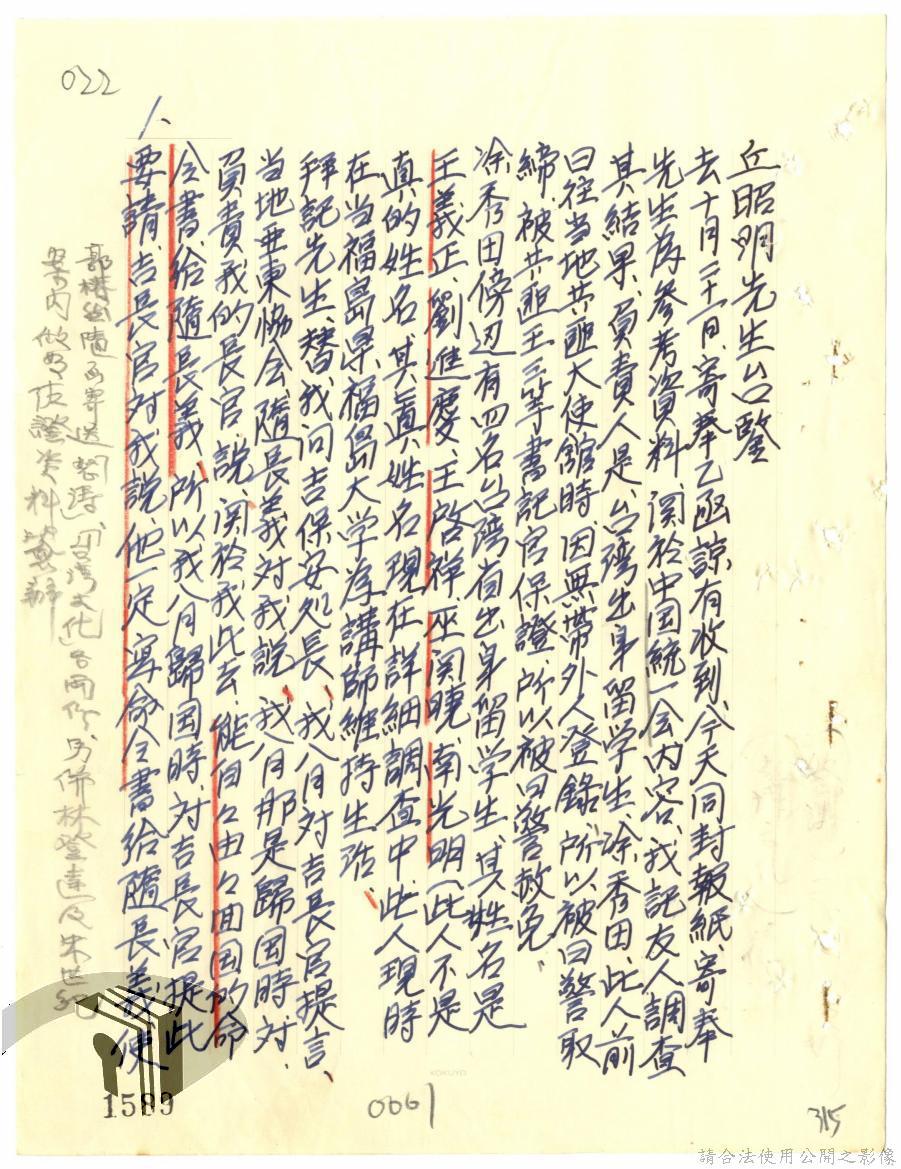 022
丘昭明先生台鑒
去十月三十一日、寄奉乙函諒有收到、今天同封報紙、寄奉
先生為參考資料、関於中国統一会内容、我託友人調查
其結果、負責人是台湾出身留学生、涂秀田、此人前
日往当地共匪大使館時、因無帶外人登錄、所以被日警取
締、被共匪王三等書記官保證、所以被日警赦免、
涂秀田傍边有四名台湾省出身留学生、其姓名是
王義正、劉進慶、王啓祥、巫関曉、南光明（此人不是
真的姓名、其眞姓名現在詳細調查中、此人現時
在当福島県福島大学為講師維持生活、
拜託先生、替我问吉保安処長、我八月对吉長官提言、
当地亜東協会、隨長義对我説、我八月那是歸国時、对
負責我的長官説、関於我此去、能自々由々囬国的命
令書、给隨長義、所以我八月歸国時、对吉長官提此
人、要請、吉長官对我説、他一定寫命令書給隨長義、使
郭樹 隨函寄送 「台湾文化」 另佛林登達及朱世紀
案内做為佐證資料 辦
1589
0061
315
KOKUYO
請合法使用公開之影像